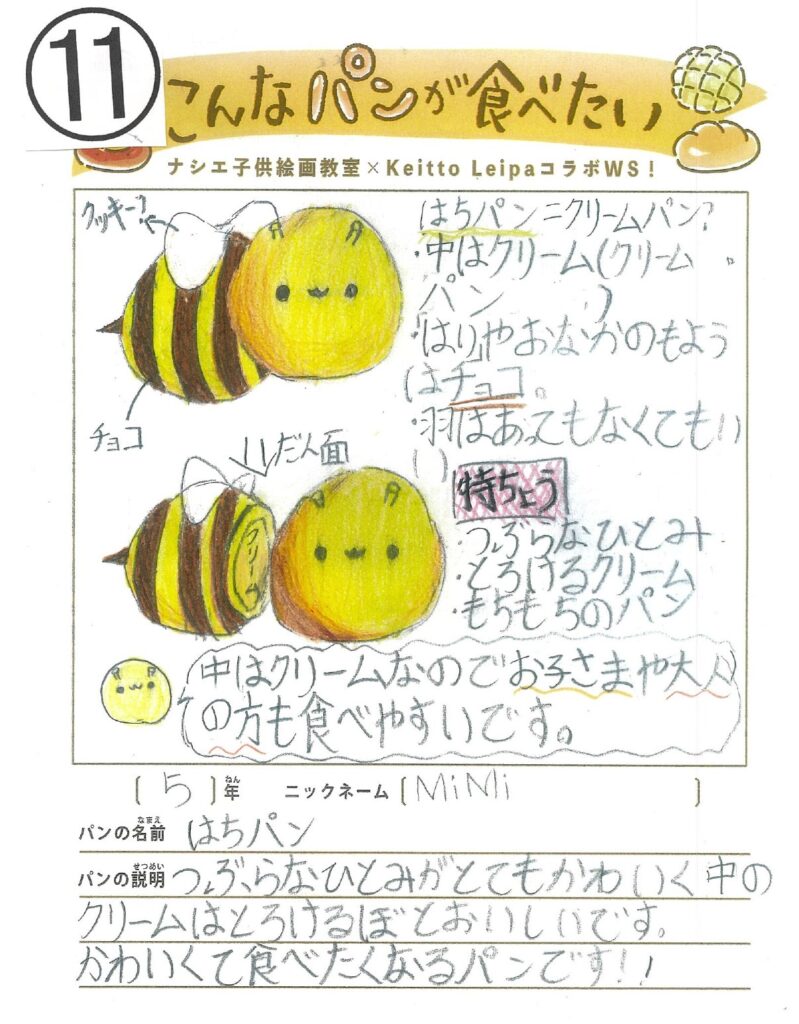 11
こんなパンが食べたい
ナシエ子供絵画教室×Keitto LeipaコラボWS！
クッキー？
はちパン＝クリームパン？
・中はクリーム（クリーム
パン　）
・「はり」やおなかのもよう
はチョコ。
・羽はあってもなくてもい
い
チョコ
だん面
クリーム
特ちょう
・つぶらなひとみ
・とろけるクリーム
・もちもちのパン
中はクリームなのでお子さまや大人
の方も食べやすいです。
〔5〕年 ニックネーム〔MiMi〕
ねん
なまえ
パンの名前 はちパン
せつめい
パンの説明 つぶらなひとみがとてもかわいく中の
クリームはとろけるほどおいしいです。
かわいくて食べたくなるパンです！！